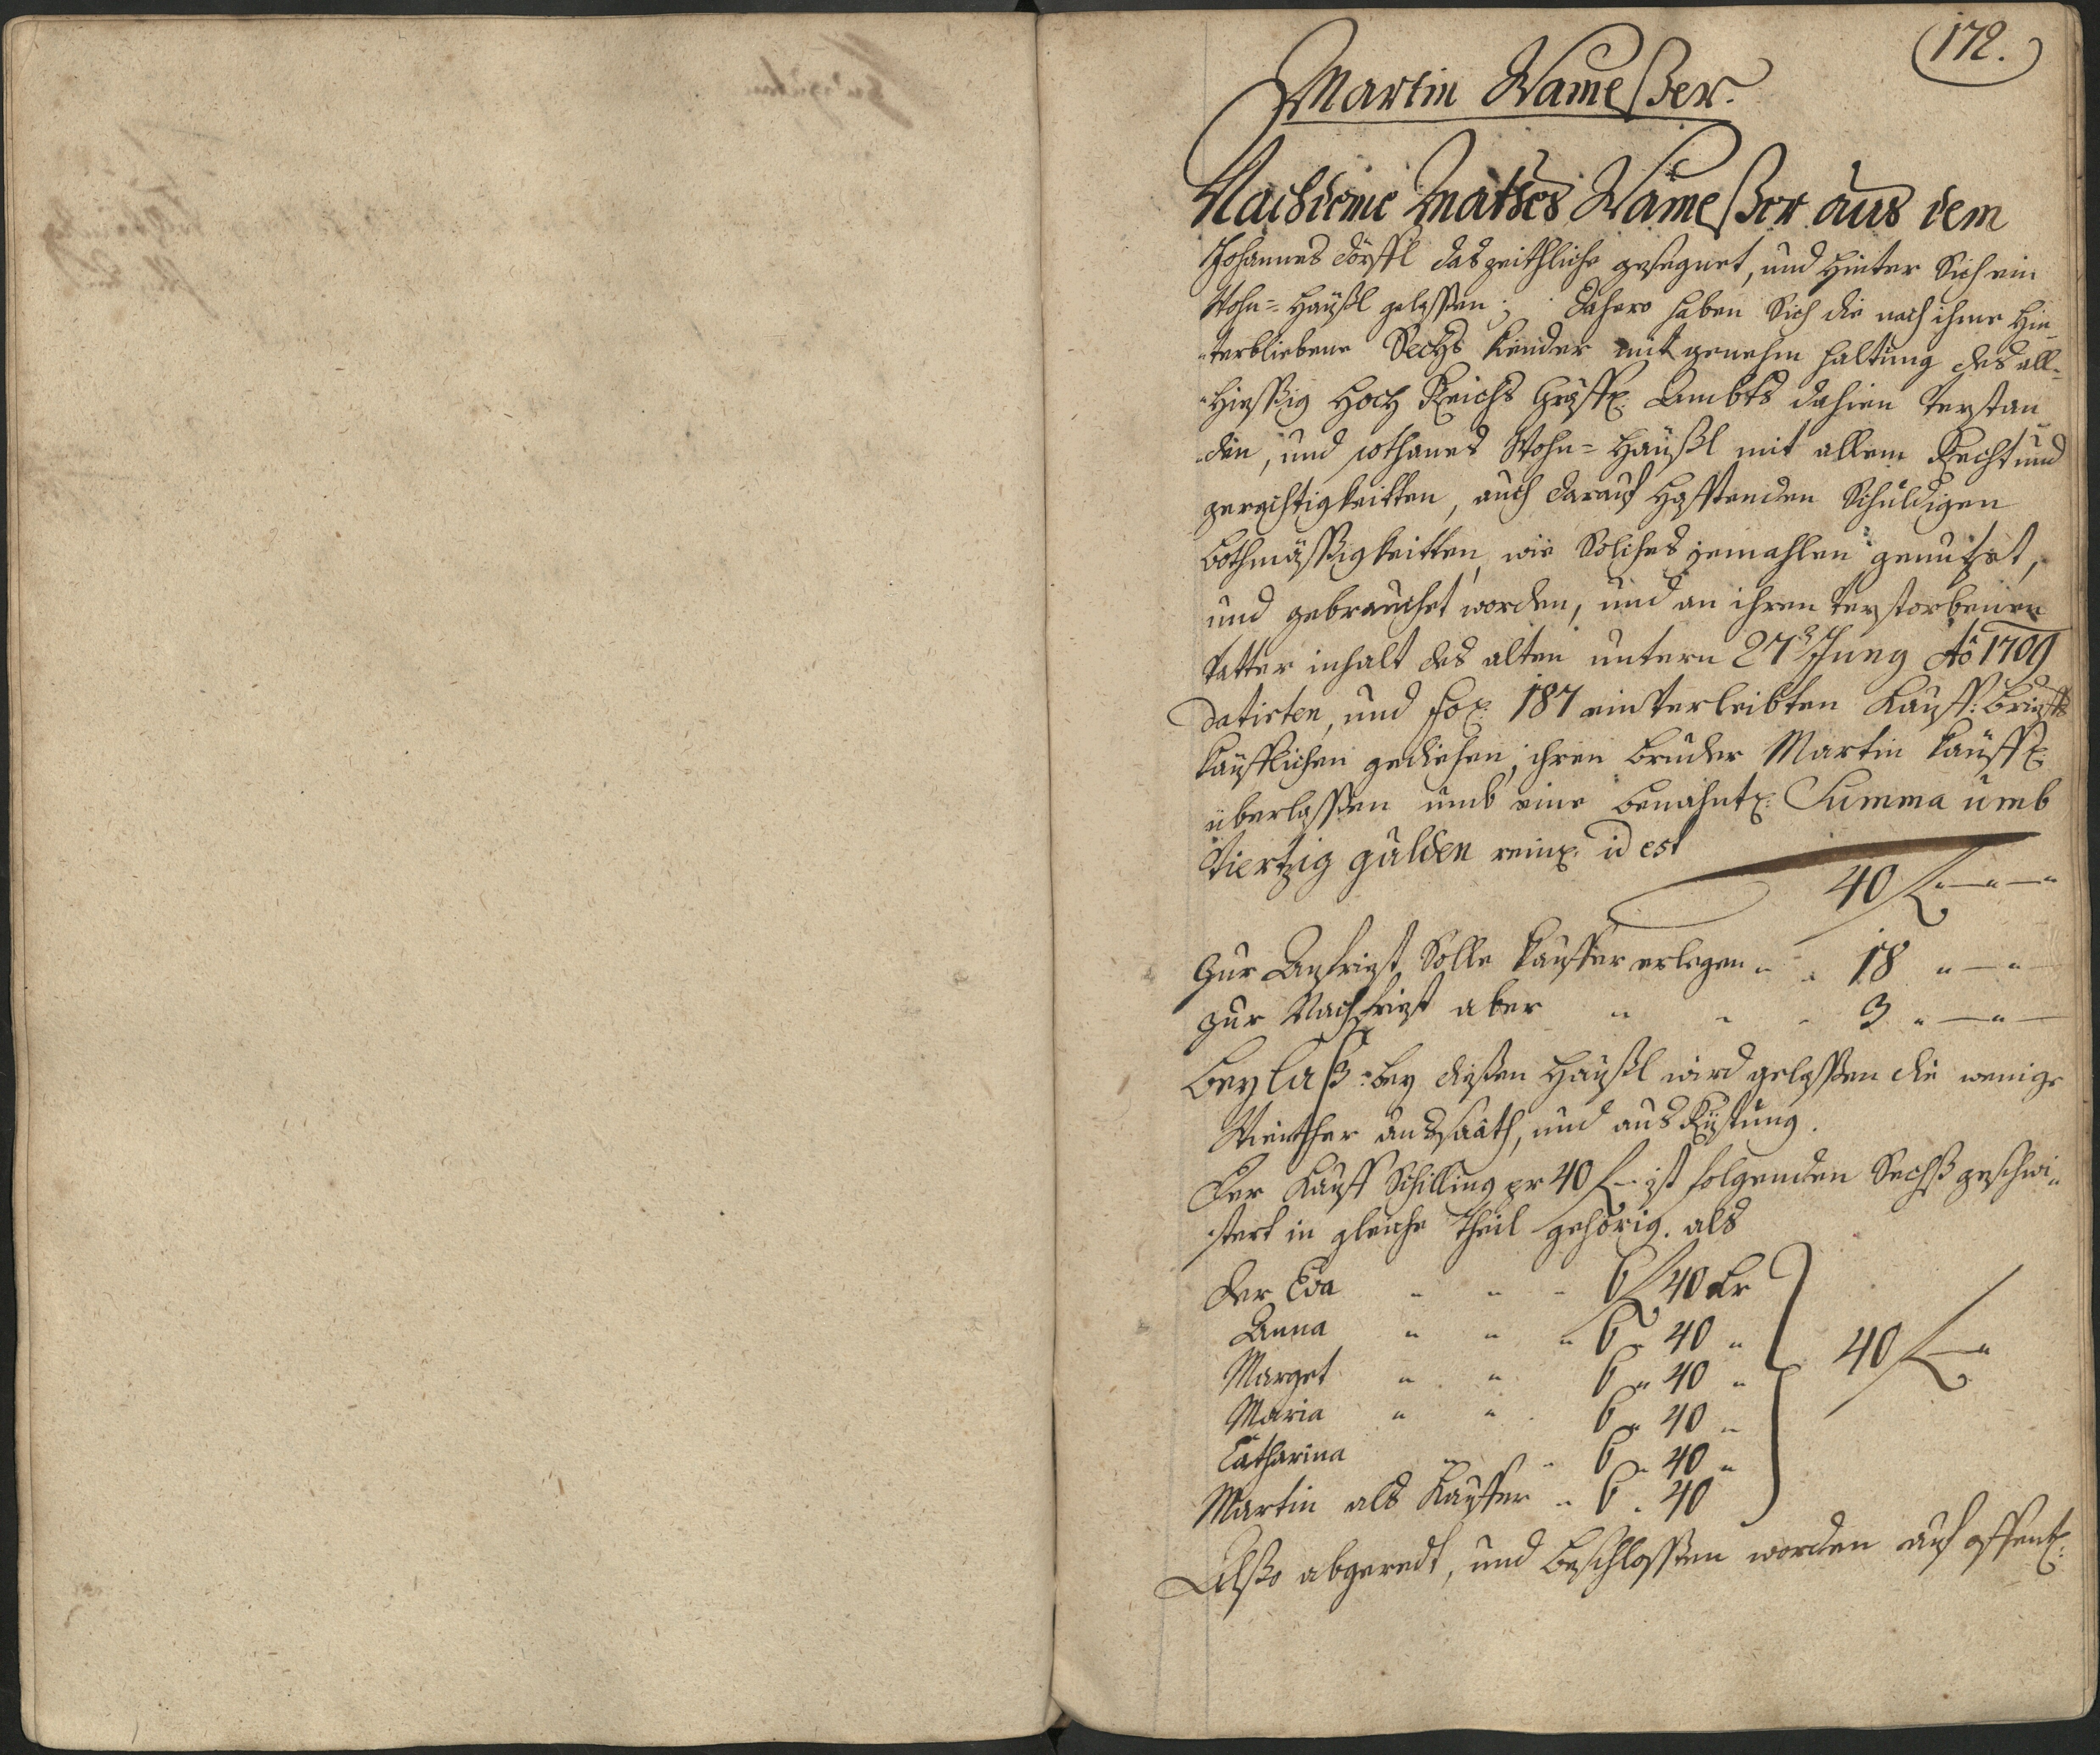 172.
Martin Wameßer.
Nachdeme Mathes Wameßer aus dem
Johannes dörffl das zeithliche gesegnet, und hinter Sich ein
Wohn=Häußl gelaßen; dahero haben Sich die nach ihme hin
terbliebene Sechs kinder mit genehm haltung des all=
hießig Hoch Reichs Gräffl: Ambts dahien verstan
den, und sothanes Wohn=Häußl mit allem Recht und
gerechtigkeitten, auch darauf hafftenden Schuldigen
bothmäßigkeitten, wie Solches jemahlen genutzet,
und gebrauchet worden, und an ihren verstorbenen
Vatter inhalt des alten untern 27 Juny Aõ 1709
datirten, und Fol: 187 einverleibten Kauff: brieffs
käufflichen gediehen, ihren bruder Martin käuffl:
überlaßen umb eine benahntl: Summa umb
Viertzig gulden reinl: id est
40 f " — " —
Zur Anfrist Solle kauffer erlegen " " 18 " — " —
zur Nachfrist aber " " " 3 " — " —
Beylaß: bey dießen Häußl wird gelaßen die wenige
Winther aussaath, und aus Rüstung.
Der Kauff Schilling pr 40 f ist folgenden Sechs geschwi
stert in gleiche Theil gehörig. als
Der Eva " " " 6 f 40 kr
Anna " " " 6 " 40 "
Marget " " 6 " 40 "
Maria " " 6 " 40 "
40 f — "
Catharina " " 6 " 40 "
Martin als Kauffer " 6 " 40
Alßo abgeredt, und beschloßen worden auf offentl: